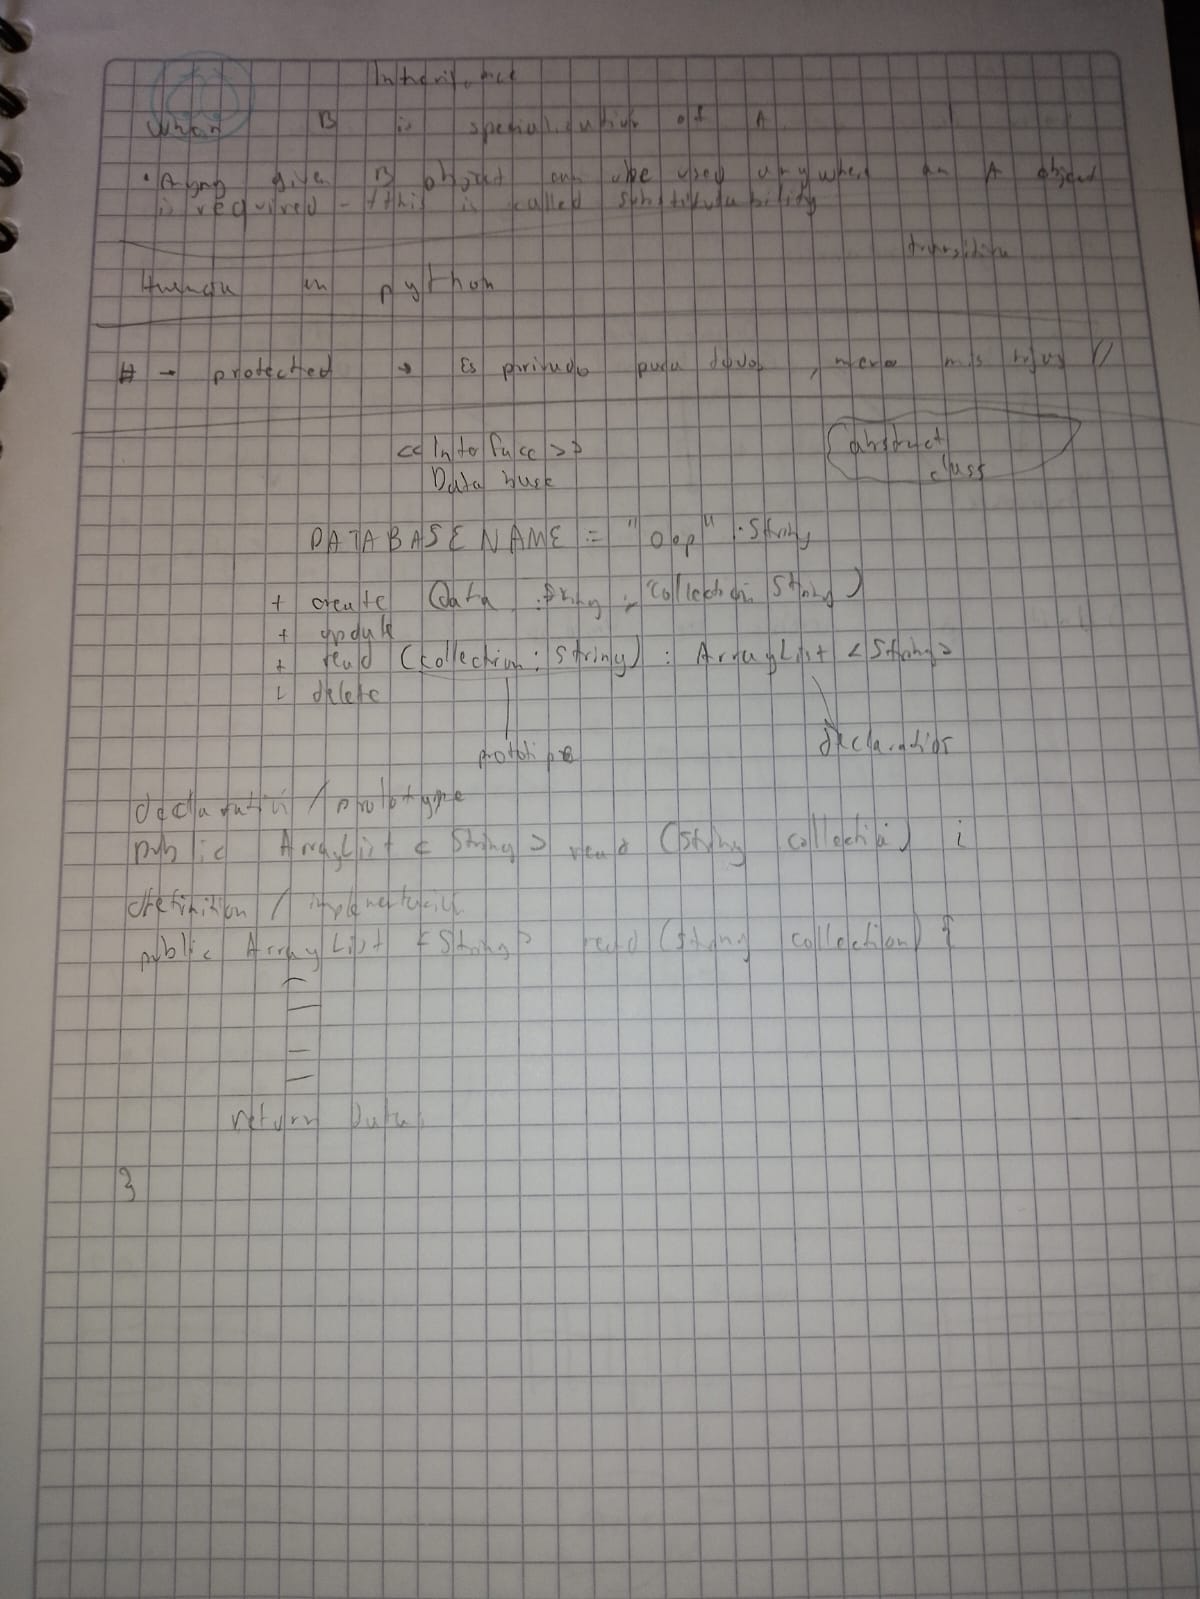 Inheritance
When B is specialization of A
• Any given B object can be used anywhere an A object
is required - this is called substitutability
transitive
en python
# → protected → Es privado para todos, menos mis hijos //
<< Interface >>
Data base
abstract
class
DATABASE NAME = "oop" : String
+ create (data : String , collection: String)
+ update
+ read (collection : String) : ArrayList <String>
+ delete
prototipe
declaration
declaration / prototype
public ArrayList < String > read (String collection) ;
definition / implementación
public ArrayList <String> read (String collection) {
return Data;
}